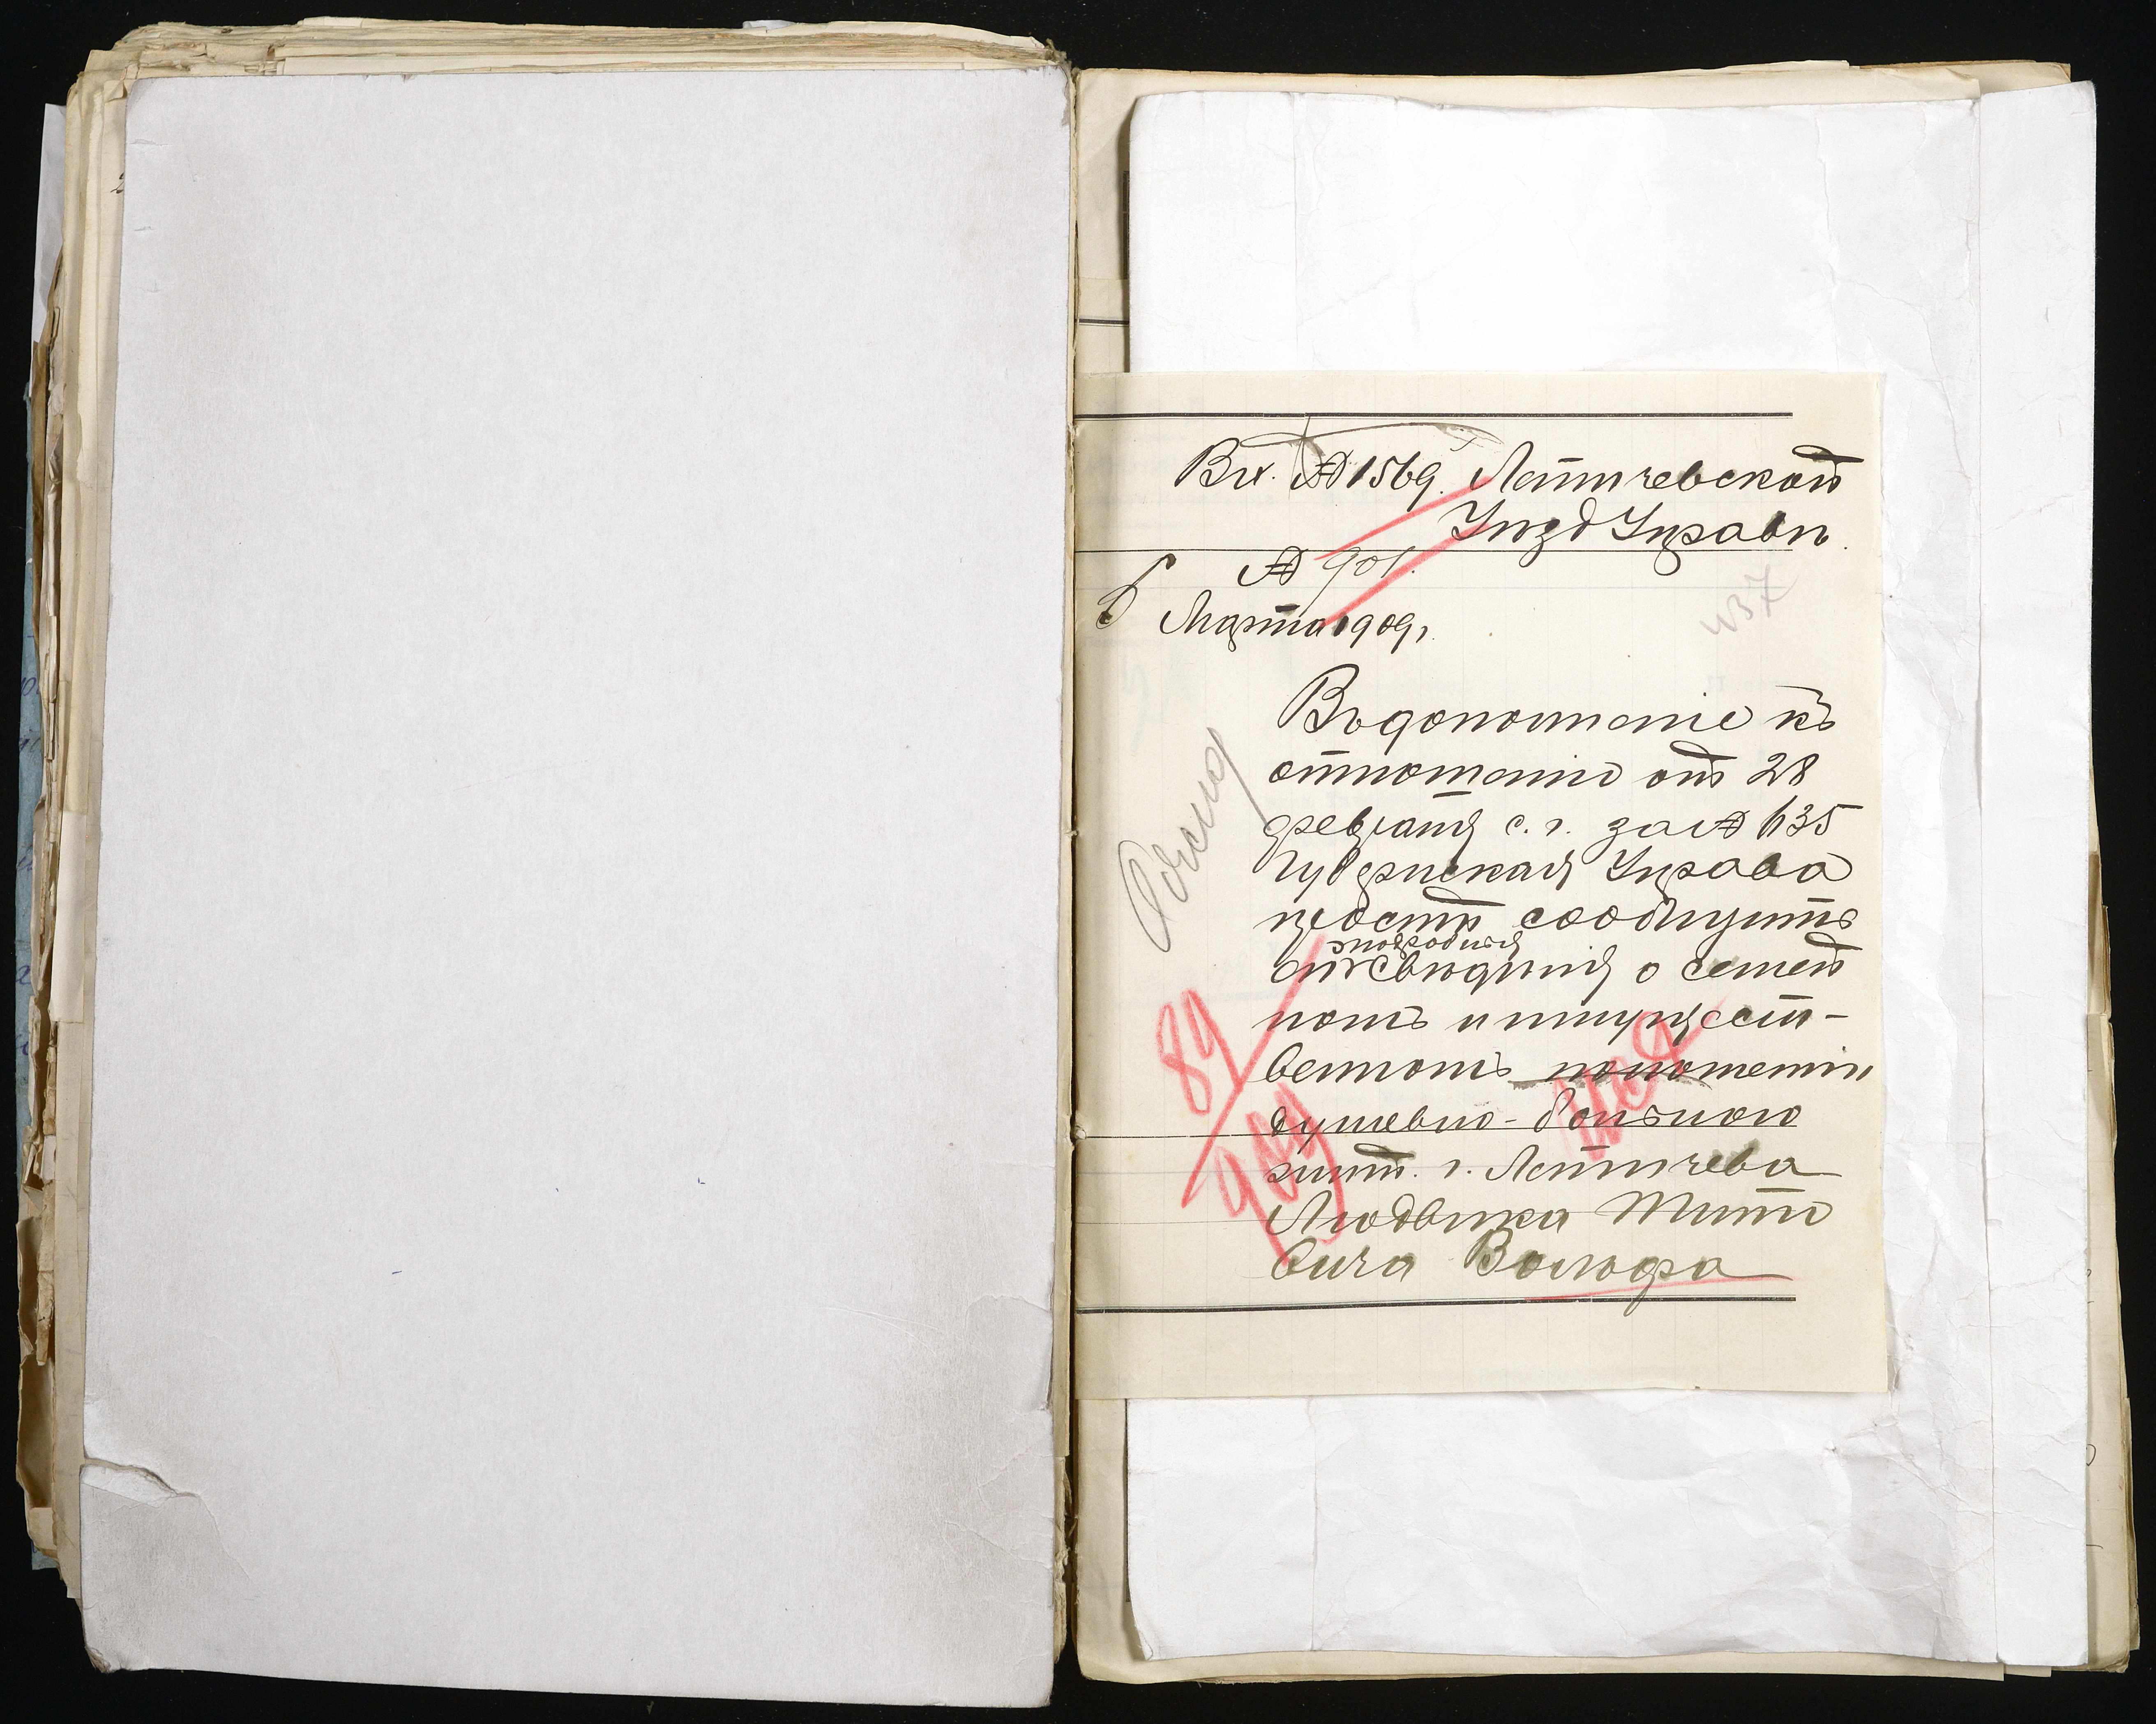 Вх. № 1569. Летичевской
Уѣзд Управѣ.
№ 901.
6 Марта 1909 г.
437
Въ дополненіе къ
отношенію отъ 28
февраля с. г. за № 635
Губернская Управа
проситъ сообщить
подробныя
свѣдѣнія о семей
номъ и имущест-
венномъ положеніи
душевно-больного
жит. г. Летичева
Людвика
вича Вольфа
89